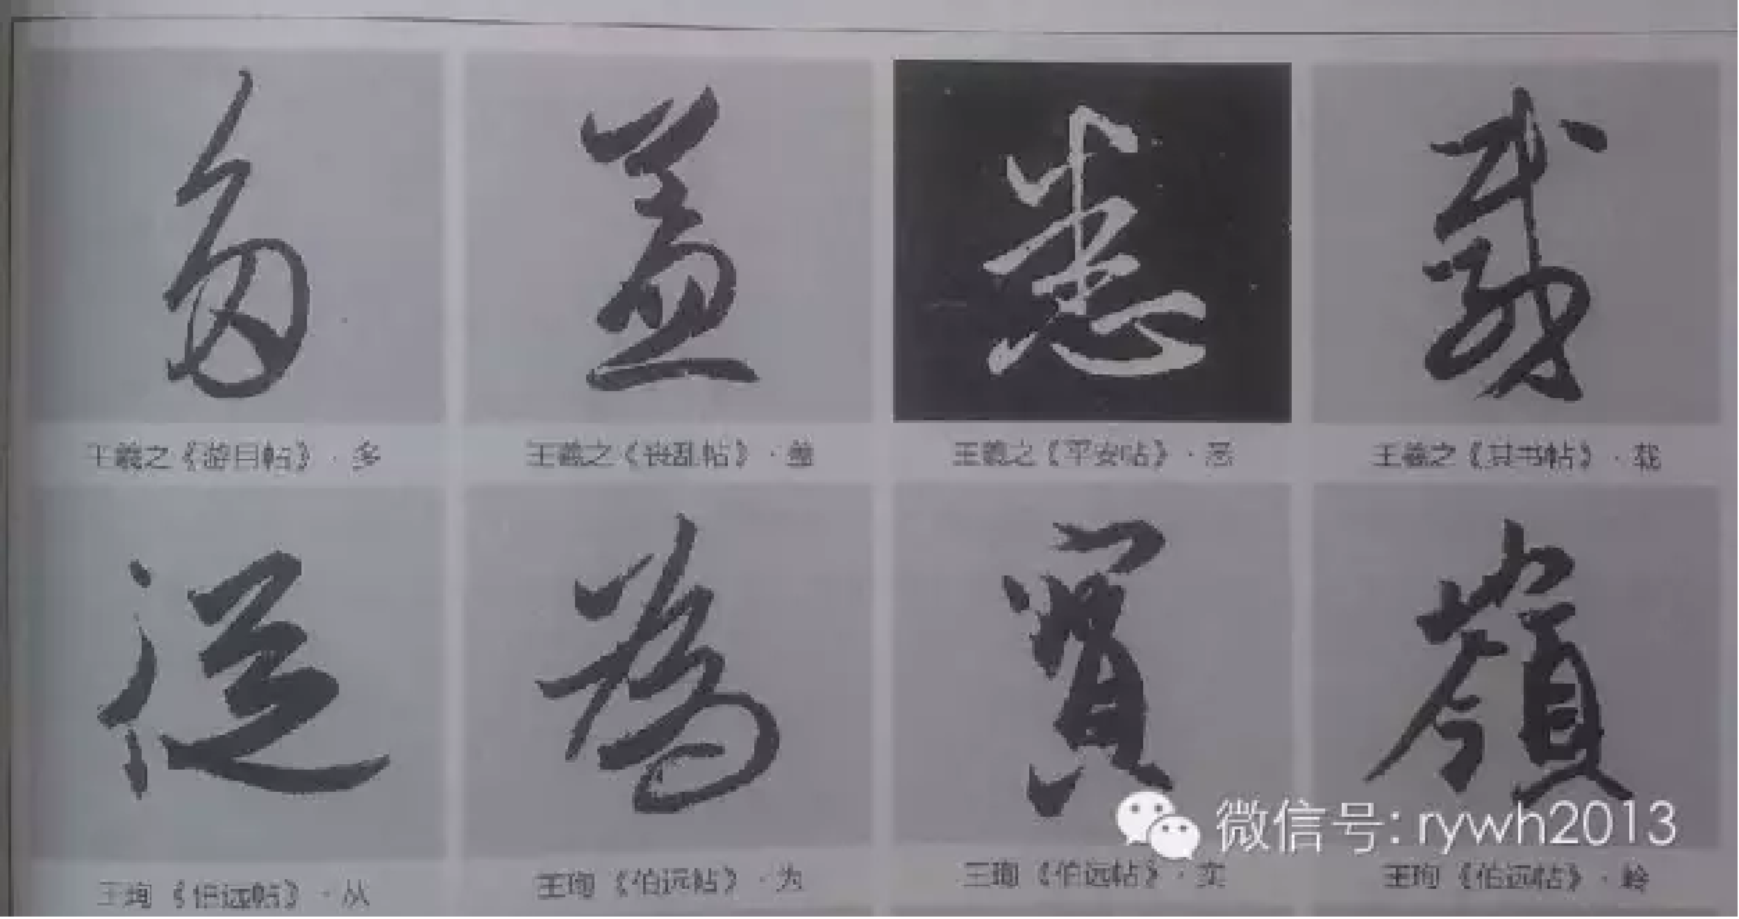 多 益 悉 載
王羲之《游目帖》·多
王羲之《丧乱帖》·益
王羲之《平安帖》·悉
王羲之《其书帖》·载
從 為 實 嶺
王珣《伯远帖》·从
王珣《伯远帖》·为
王珣《伯远帖》·实
王珣《伯远帖》·岭
微信号: rywh2013